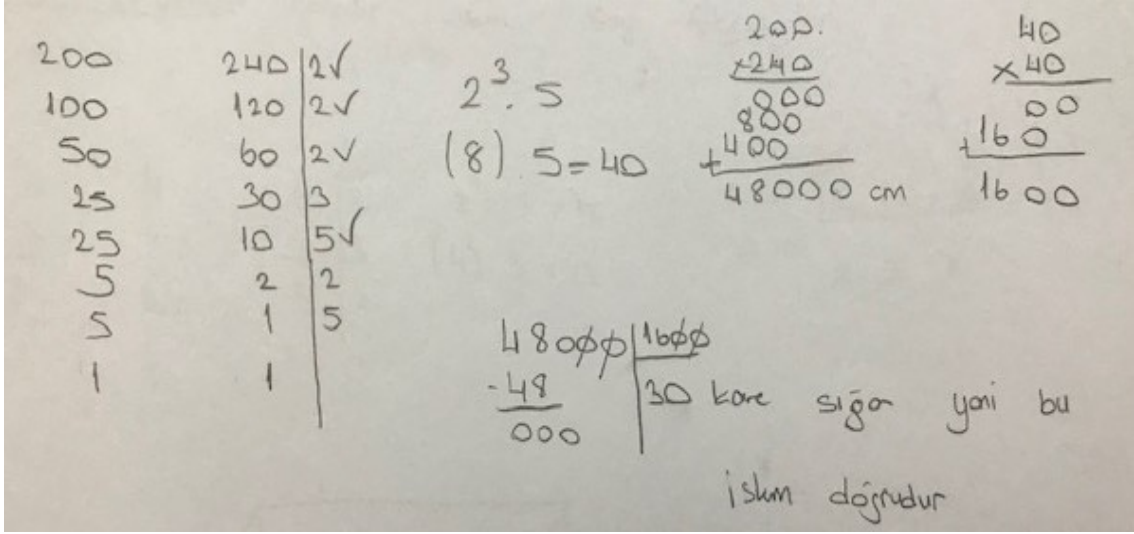 200 240 | 2 ✓
100 120 | 2 ✓
50 60 | 2 ✓
25 30 | 3
25 10 | 5 ✓
5 2 | 2
5 1 | 5
1 1 |
2³ . 5
(8) . 5 = 40
200.
x240
000
800
+400
48000 cm
40
x 40
00
+160
1600
48000 | 1600
-48 | 30 kare sığar yani bu
000
işlem doğrudur